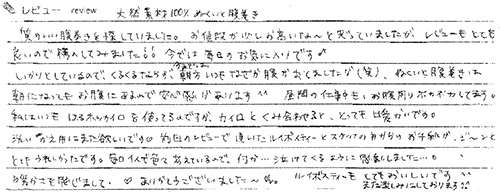 レビュー review 天然素材100% ぬくいと腹巻き
質のいい腹巻きを探していました。お値段が少しお高いな〜と思っていましたが、レビューもとても
良いので購入してみました!! 今では毎日のお気に入りです♪
しっかりとしているので、くるくるならず、朝方いつもなぜか腹が出てましたが(笑)、ぬくいと腹巻きは
朝になってもお腹にあるので安心感があります^^ 昼間の仕事中も、お腹周りポカポカしてます。
私はいつもはるホッカイロを使ってるのですが、カイロとくみ合わせると、とっても暖かいです。
洗いがえ用にまた欲しいです。前回のレビューで頂いたルイボスティーとスタッフの方からのお手紙が、ジ〜ンと
とてもうれしかったです。毎日1人で
ので、何か…泣けてくるように感動しました…。
お暖かさを感じまして、♡ ありがとうございました〜
ルイボスティーもとてもおいしいです
また楽しみにしております